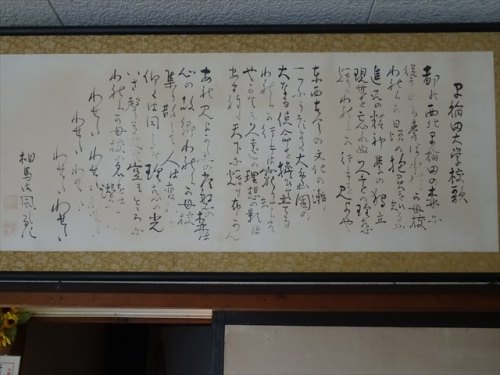 早稲田大学校歌
都の西北早稲田の森に
聳ゆる甍はわれらが母校
われらが日頃の抱負を知るや
進取の精神学の独立
現世を忘れぬ久遠の理想
かゞやくわれらが行手を見よや
東西古今の文化の潮
一つに渦巻く大島国の
大なる使命を担ひて立てる
われらが行手は窮り知らず
やがても久遠の理想の影は
あまねく天下に輝き布かん
あれ見よかしこの常磐の森は
心の故郷われらが母校
集り散じて人は変れど
仰ぐは同じき理想の光
いざ声そろへて空もとゞろに
われらが母校の名をば
わせだ わせだ
わせだ わせだ
わせだ わせだ
相馬御風